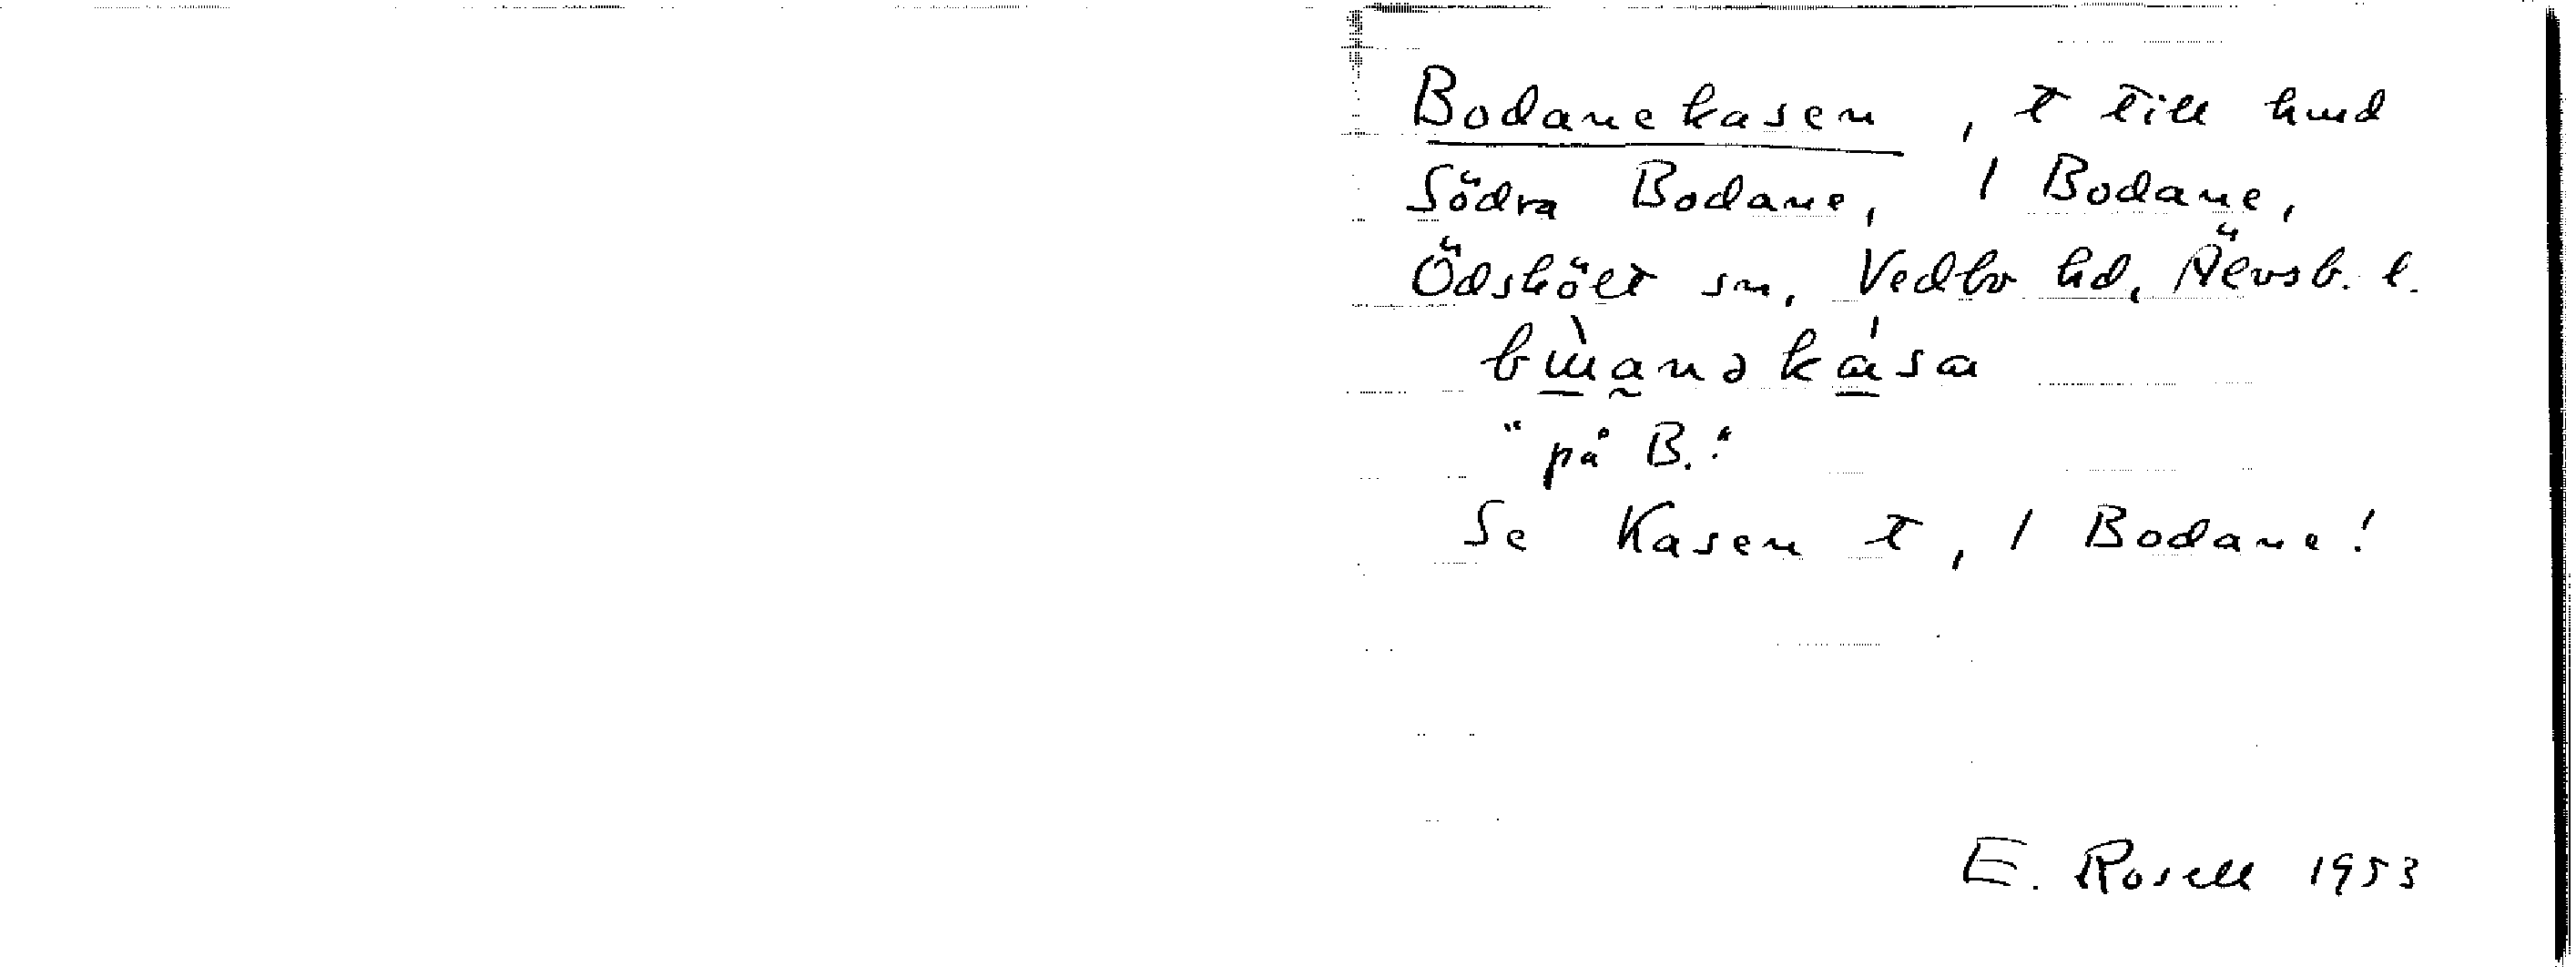 Bodanekasen, t till hmd
Södra Bodane, 1 Bodane,
Ödskölt sn, Vedbo hd, Älvsb. l.
"på B."
Se Kasen t, 1 Bodane!
E. Rosell 1953